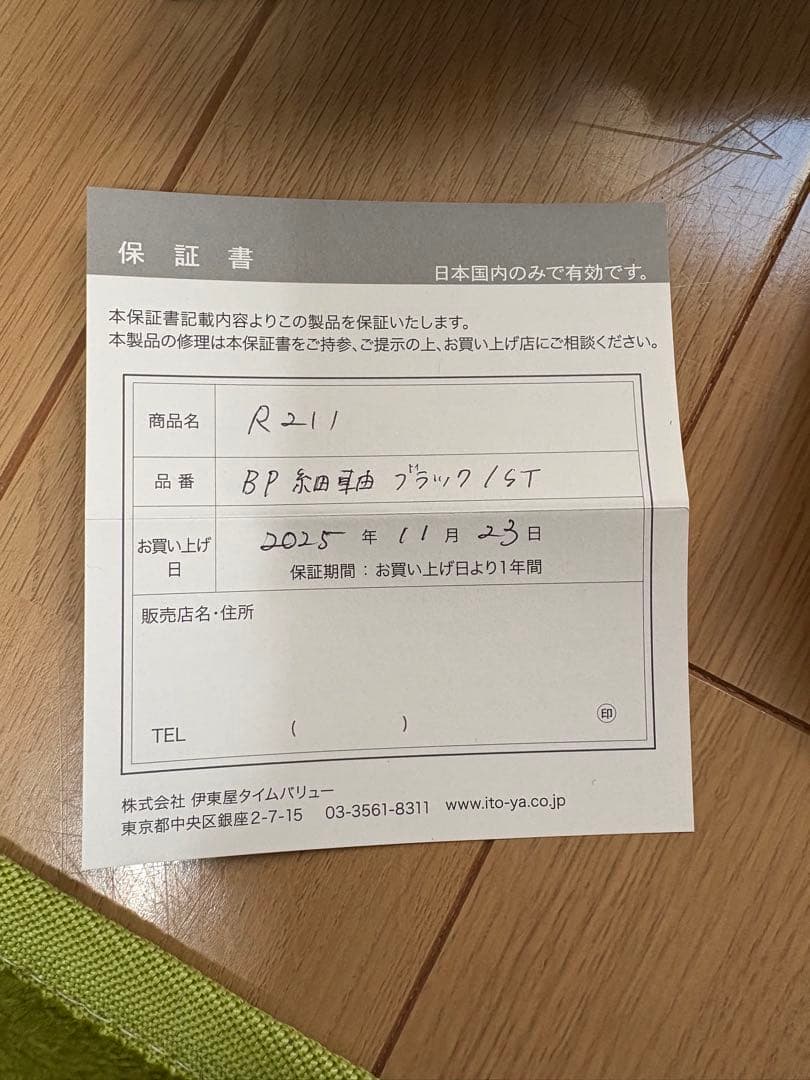 保証書
日本国内のみで有効です。
本保証書記載内容よりこの製品を保証いたします。
本製品の修理は本保証書をご持参、ご提示の上、お買い上げ店にご相談ください。
商品名 R211
品番 BP 細軸 ブラック/ST
お買い上げ日 2025年11月23日
保証期間：お買い上げ日より1年間
販売店名・住所
TEL ( ) 印
株式会社 伊東屋タイムバリュー
東京都中央区銀座2-7-15 03-3561-8311 www.ito-ya.co.jp